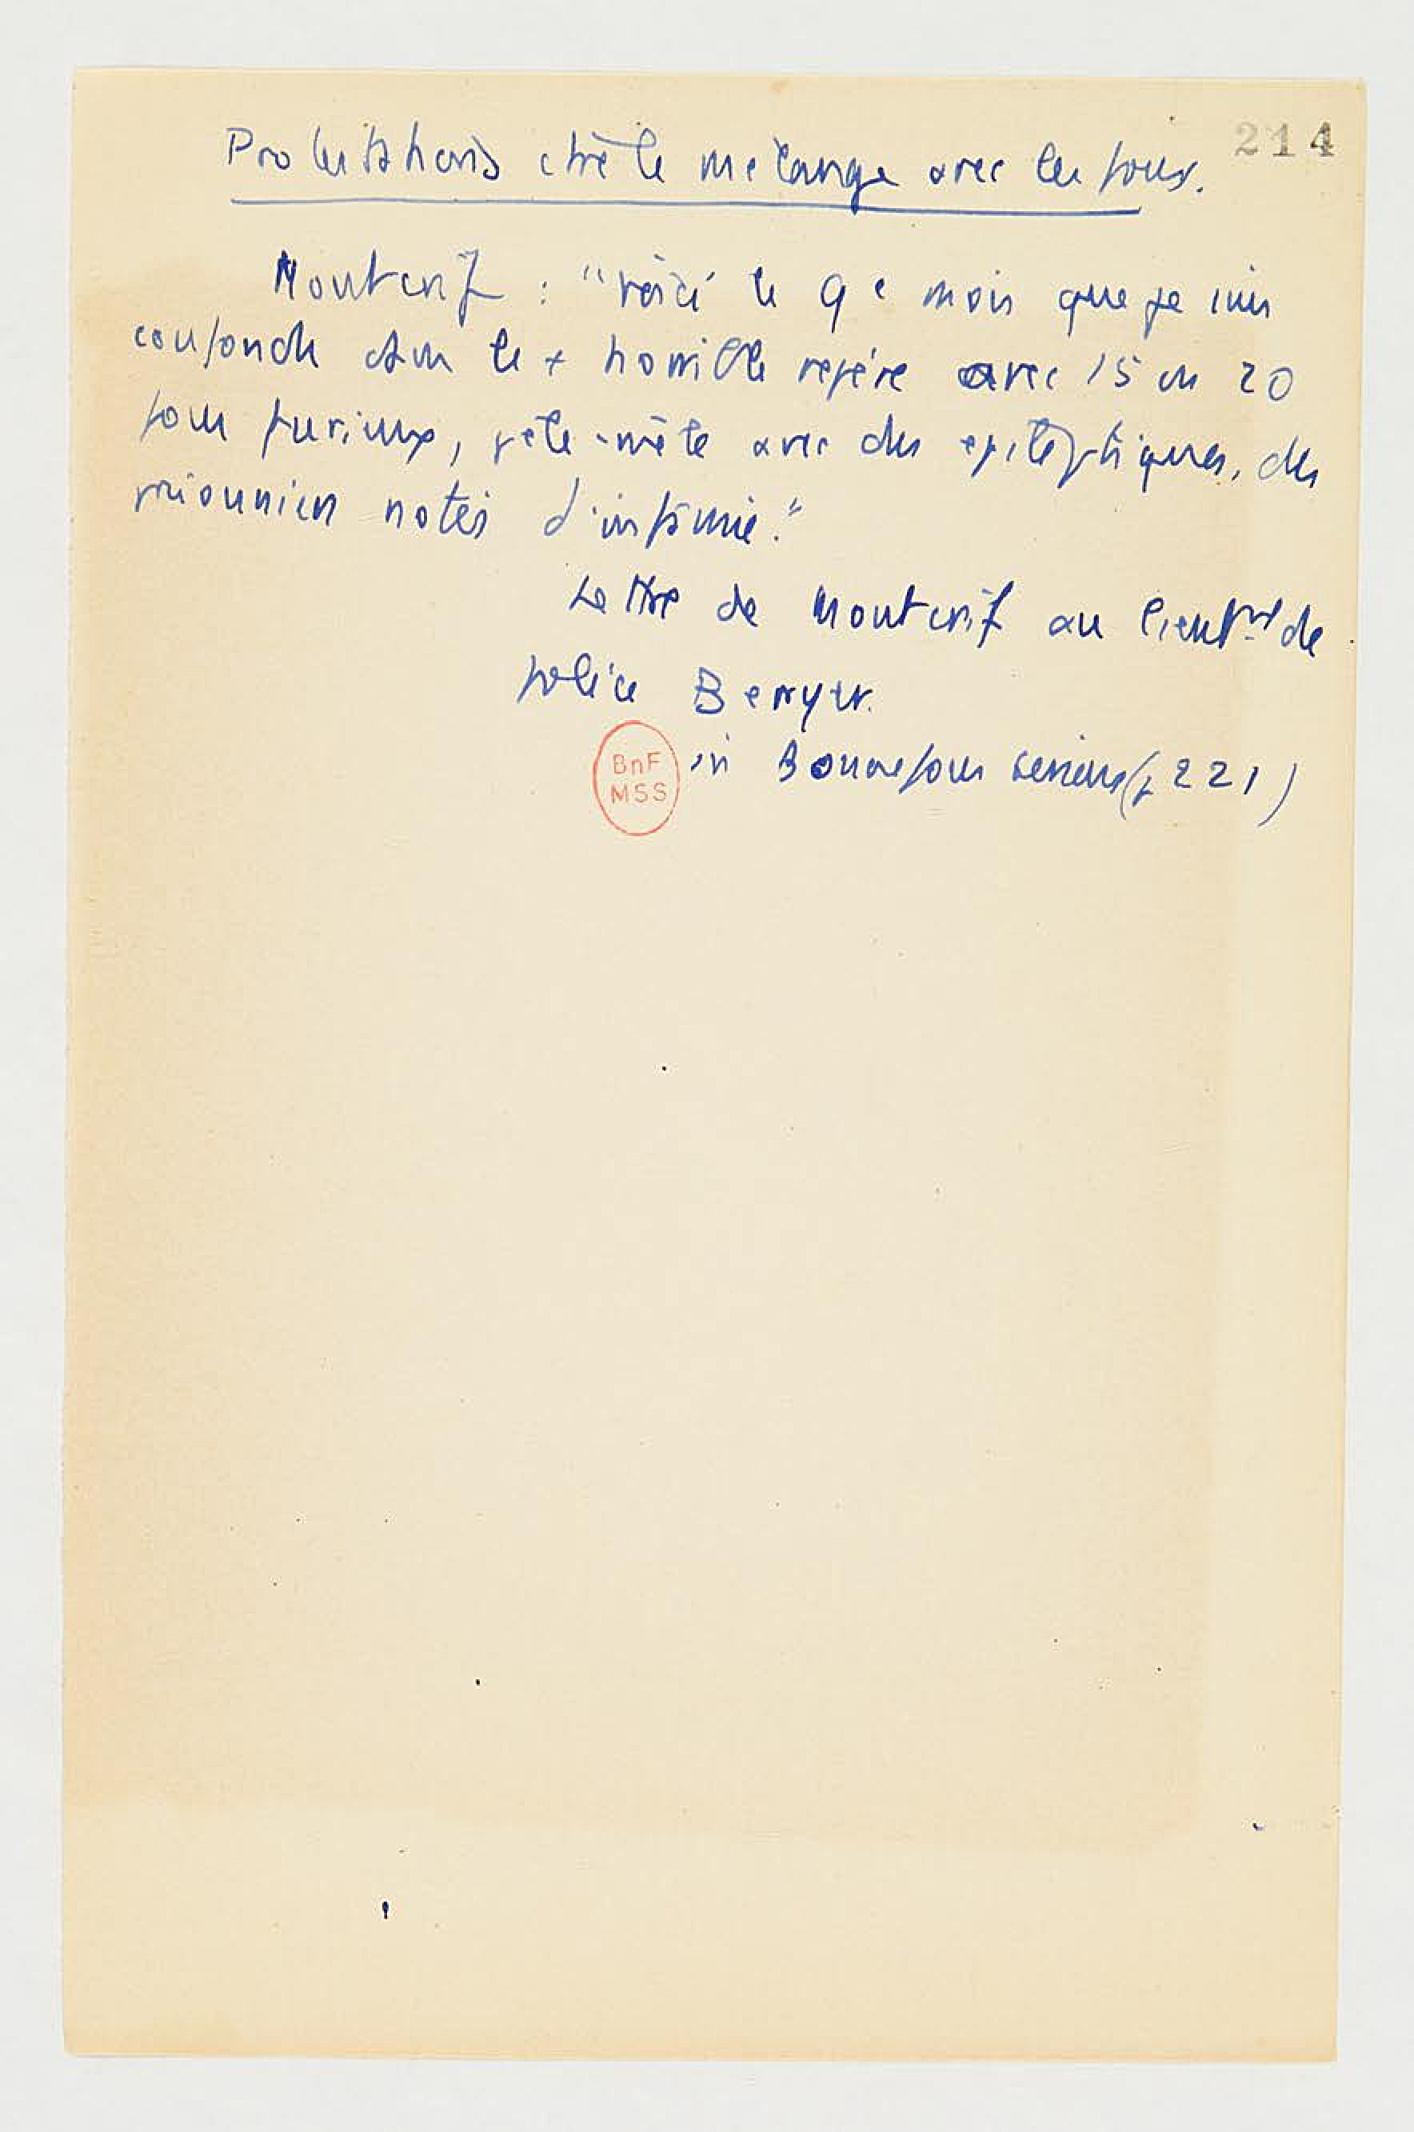 214
Protestations ctre le mélange avec les fous.
Montcrif : "Voici le 9e mois que je suis
confondu dans le + horrible repère avec 15 ou 20
fous furieux, pêle-mêle avec des epileptiques, des
prisonniers notés d'infamie."
Lettre de Montcrif au lieutnt de
police Berryer.
BnF
MSS
in Bonnafous Serieux (p 221)